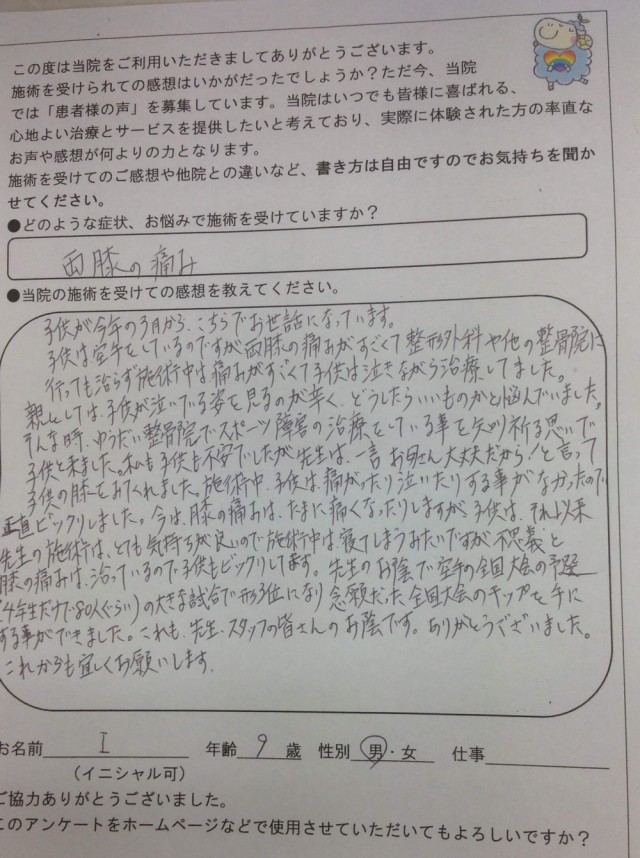 この度は当院をご利用いただきましてありがとうございます。
施術を受けられての感想はいかがだったでしょうか？ただ今、当院
では「患者様の声」を募集しています。当院はいつでも皆様に喜ばれる、
心地よい治療とサービスを提供したいと考えており、実際に体験された方の率直な
お声や感想が何よりの力となります。
施術を受けてのご感想や他院との違いなど、書き方は自由ですのでお気持ちを聞か
せてください。
●どのような症状、お悩みで施術を受けていますか？
両膝の痛み
●当院の施術を受けての感想を教えてください。
子供が今年の3月から、こちらでお世話になっています。
子供は空手をしているのですが両膝の痛みがすごくて整形外科や他の整骨院に
行っても治らず施術中は痛みがすごくて子供は泣きながら治療してました。
親としては、子供が泣いでる姿を見るのが辛く、どうしたらいいものかと悩んでいました。
そんな時、ゆうだい整骨院でスポーツ障害の治療をしている事を知り祈る思いで
子供と来ました。私も子供も不安でしたが先生は、一言 お母さん大丈夫だから！と言って
子供の膝をみてくれました。施術中、子供は、痛がったり泣いたりする事がなかったので
正直ビックリしました。今は、膝の痛みは、たまに痛くなったりしますが、子供は、それ以来
先生の施術は、とても気持ちが良いので施術中は、寝てしまうみたいですが不思議と
膝の痛みは、治っているので子供もビックリしてます。先生のお陰で空手の全国大会の予選
(4年生だけで80人ぐらい)の大きな試合で形3位になり念願だった全国大会のキップを手に
する事ができました。これも、先生、スタッフの皆さんのお陰です。ありがとうございました。
これからも宜しくお願いします。
お名前 I 年齢 9 歳 性別 男・女 仕事
（イニシャル可）
ご協力ありがとうございました。
このアンケートをホームページなどで使用させていただいてもよろしいですか？